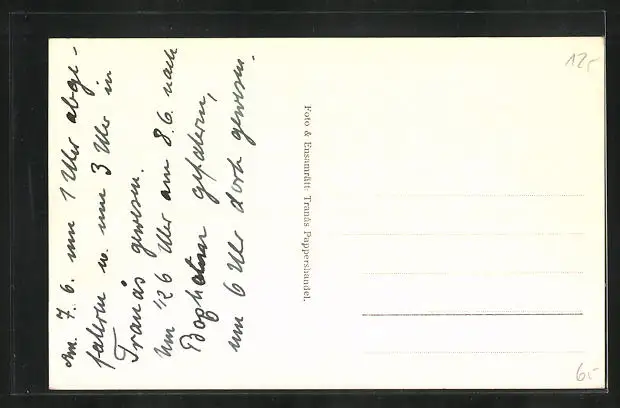 Am 7. 6. um 1 Uhr abge-
fahren u. um 3 Uhr in
Tranås gewesen.
Um 1/2 6 Uhr am 8. 6. nach
gefahren,
um 6 Uhr dort gewesen.
Foto & Ensamrätt: Tranås Pappershandel.
12,-
6,-